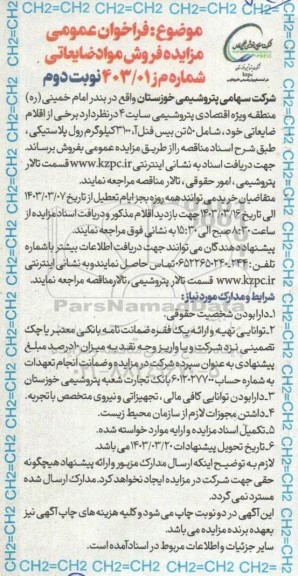 موضوع: فراخوان عمومی
مزایده فروش مواد ضایعاتی
شماره م ز ۴۰۳/۰۱ نوبت دوم
شرکت سهامی پتروشیمی خوزستان واقع در بندر امام خمینی (ره)
منطقه ویژه اقتصادی پتروشیمی سایت ۴ در نظر دارد برخی از اقلام
ضایعاتی خود، شامل ۵۰ تن بیس فنل آ، ۳۱۰۰ کیلوگرم رول پلاستیکی،
طبق شرح اسناد مناقصه را از طریق مزایده عمومی بفروش برساند.
جهت دریافت اسناد به نشانی اینترنتی www.kzpc.ir قسمت تالار
پتروشیمی، امور حقوقی، تالار مناقصه مراجعه نمایند.
متقاضیان خرید می توانند همه روزه بجز ایام تعطیل از تاریخ ۱۴۰۳/۰۳/۰۷
الی تاریخ ۱۴۰۳/۰۳/۱۶ جهت بازدید اقلام مذکور و دریافت اسناد مزایده از
ساعت ۸:۳۰ صبح الی ۱۵:۳۰ به نشانی فوق مراجعه نمایند.
پیشنهاد دهندگان می توانند جهت دریافت اطلاعات بیشتر با شماره
تلفن: ۲۴۴-۲۴۰-۰۶۵۲۲۶۵ تماس حاصل نمایند و به نشانی اینترنتی
www.kzpc.ir قسمت تالار پتروشیمی، تالار مناقصه مراجعه نمایند.
شرایط و مدارک مورد نیاز:
۱. دارا بودن شخصیت حقوقی.
۲. توانایی تهیه و ارائه یک فقره ضمانت نامه بانکی معتبر یا چک
تضمینی نزد شرکت و یا واریز وجه نقد به میزان ۱۰ درصد مبلغ
پیشنهادی به عنوان سپرده شرکت در مزایده و ضمانت انجام تعهدات
به شماره حساب ۶۰۱۳۰۲۷۷۰ بانک تجارت شعبه پتروشیمی خوزستان
۳. دارا بودن توانایی کافی مالی، تجهیزاتی و نیروی متخصص با تجربه.
۴. داشتن مجوزات لازم از سازمان محیط زیست.
۵. تکمیل اسناد مزایده و ارایه موارد خواسته شده.
۶. تاریخ تحویل پیشنهادات ۱۴۰۳/۰۳/۲۰ می باشد.
لازم به توضیح اینکه ارسال مدارک مزبور و ارائه پیشنهاد هیچگونه
حقی جهت شرکت در مزایده ایجاد نخواهد کرد. مدارک ارسال شده
مسترد نمی گردد.
این آگهی در دو نوبت چاپ می شود و کلیه هزینه های چاپ آگهی نیز
بعهده برنده مزایده می باشد.
سایر جزئیات و اطلاعات مربوط در اسناد آمده است.
CH2=CH2 CH2=CH2 CH2=CH2 CH2=CH2
ParsNamadData